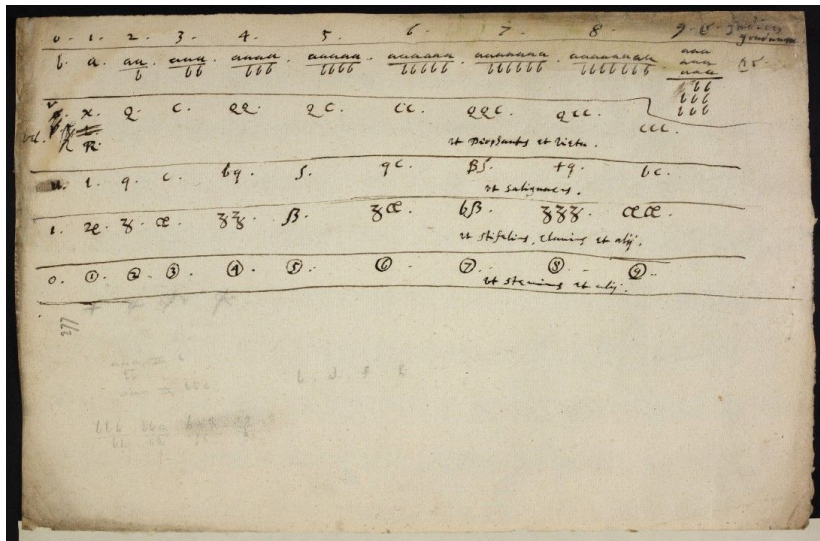 0. 1. 2. 3. 4. 5. 6. 7. 8. 9. &. Indices
graduum
b. a. aa/b. aaa/bb. aaaa/bbb. aaaaa/bbbb. aaaaaa/bbbbb. aaaaaaa/bbbbbb. aaaaaaaa/bbbbbbb. aaaaaaaaa/bbbbbbbb
x. Q. C. QQ. QC. CC. QQC. QCC. CCC.
vel. R.
ut Diophantus et Vieta.
u. l. q. c. bq. ſ. qc. Bſ. tq. bc.
ut Salignacus.
1. ꝝ. ʒ. ce. ʒʒ. ß. ʒce. bß. ʒʒʒ. cece.
ut Stifelius, Clavius et alij.
0. ① ② ③ ④ ⑤ ⑥ ⑦ ⑧ ⑨
ut Stevinus et alij.
277